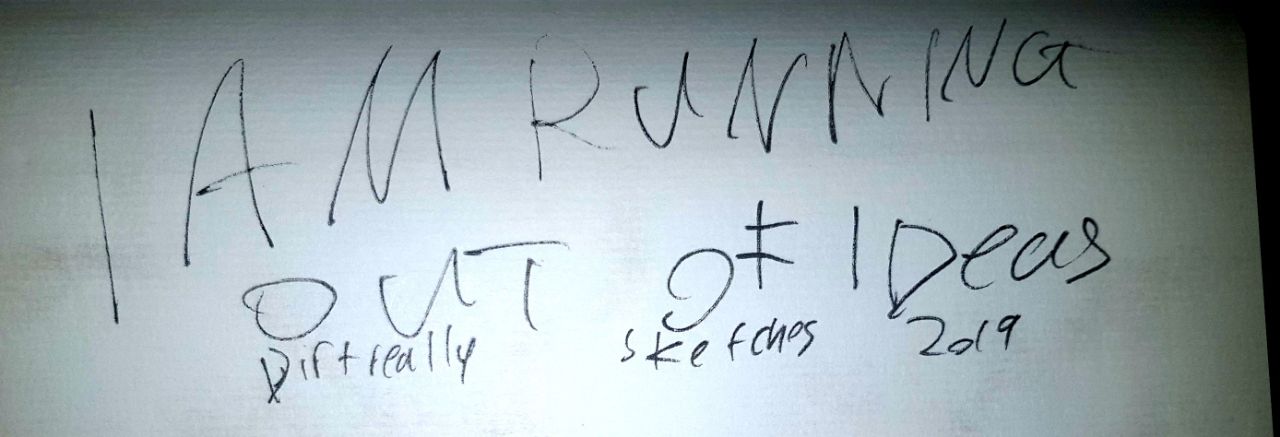 I AM RUNNING
OUT Of IDeas
sketches 2019